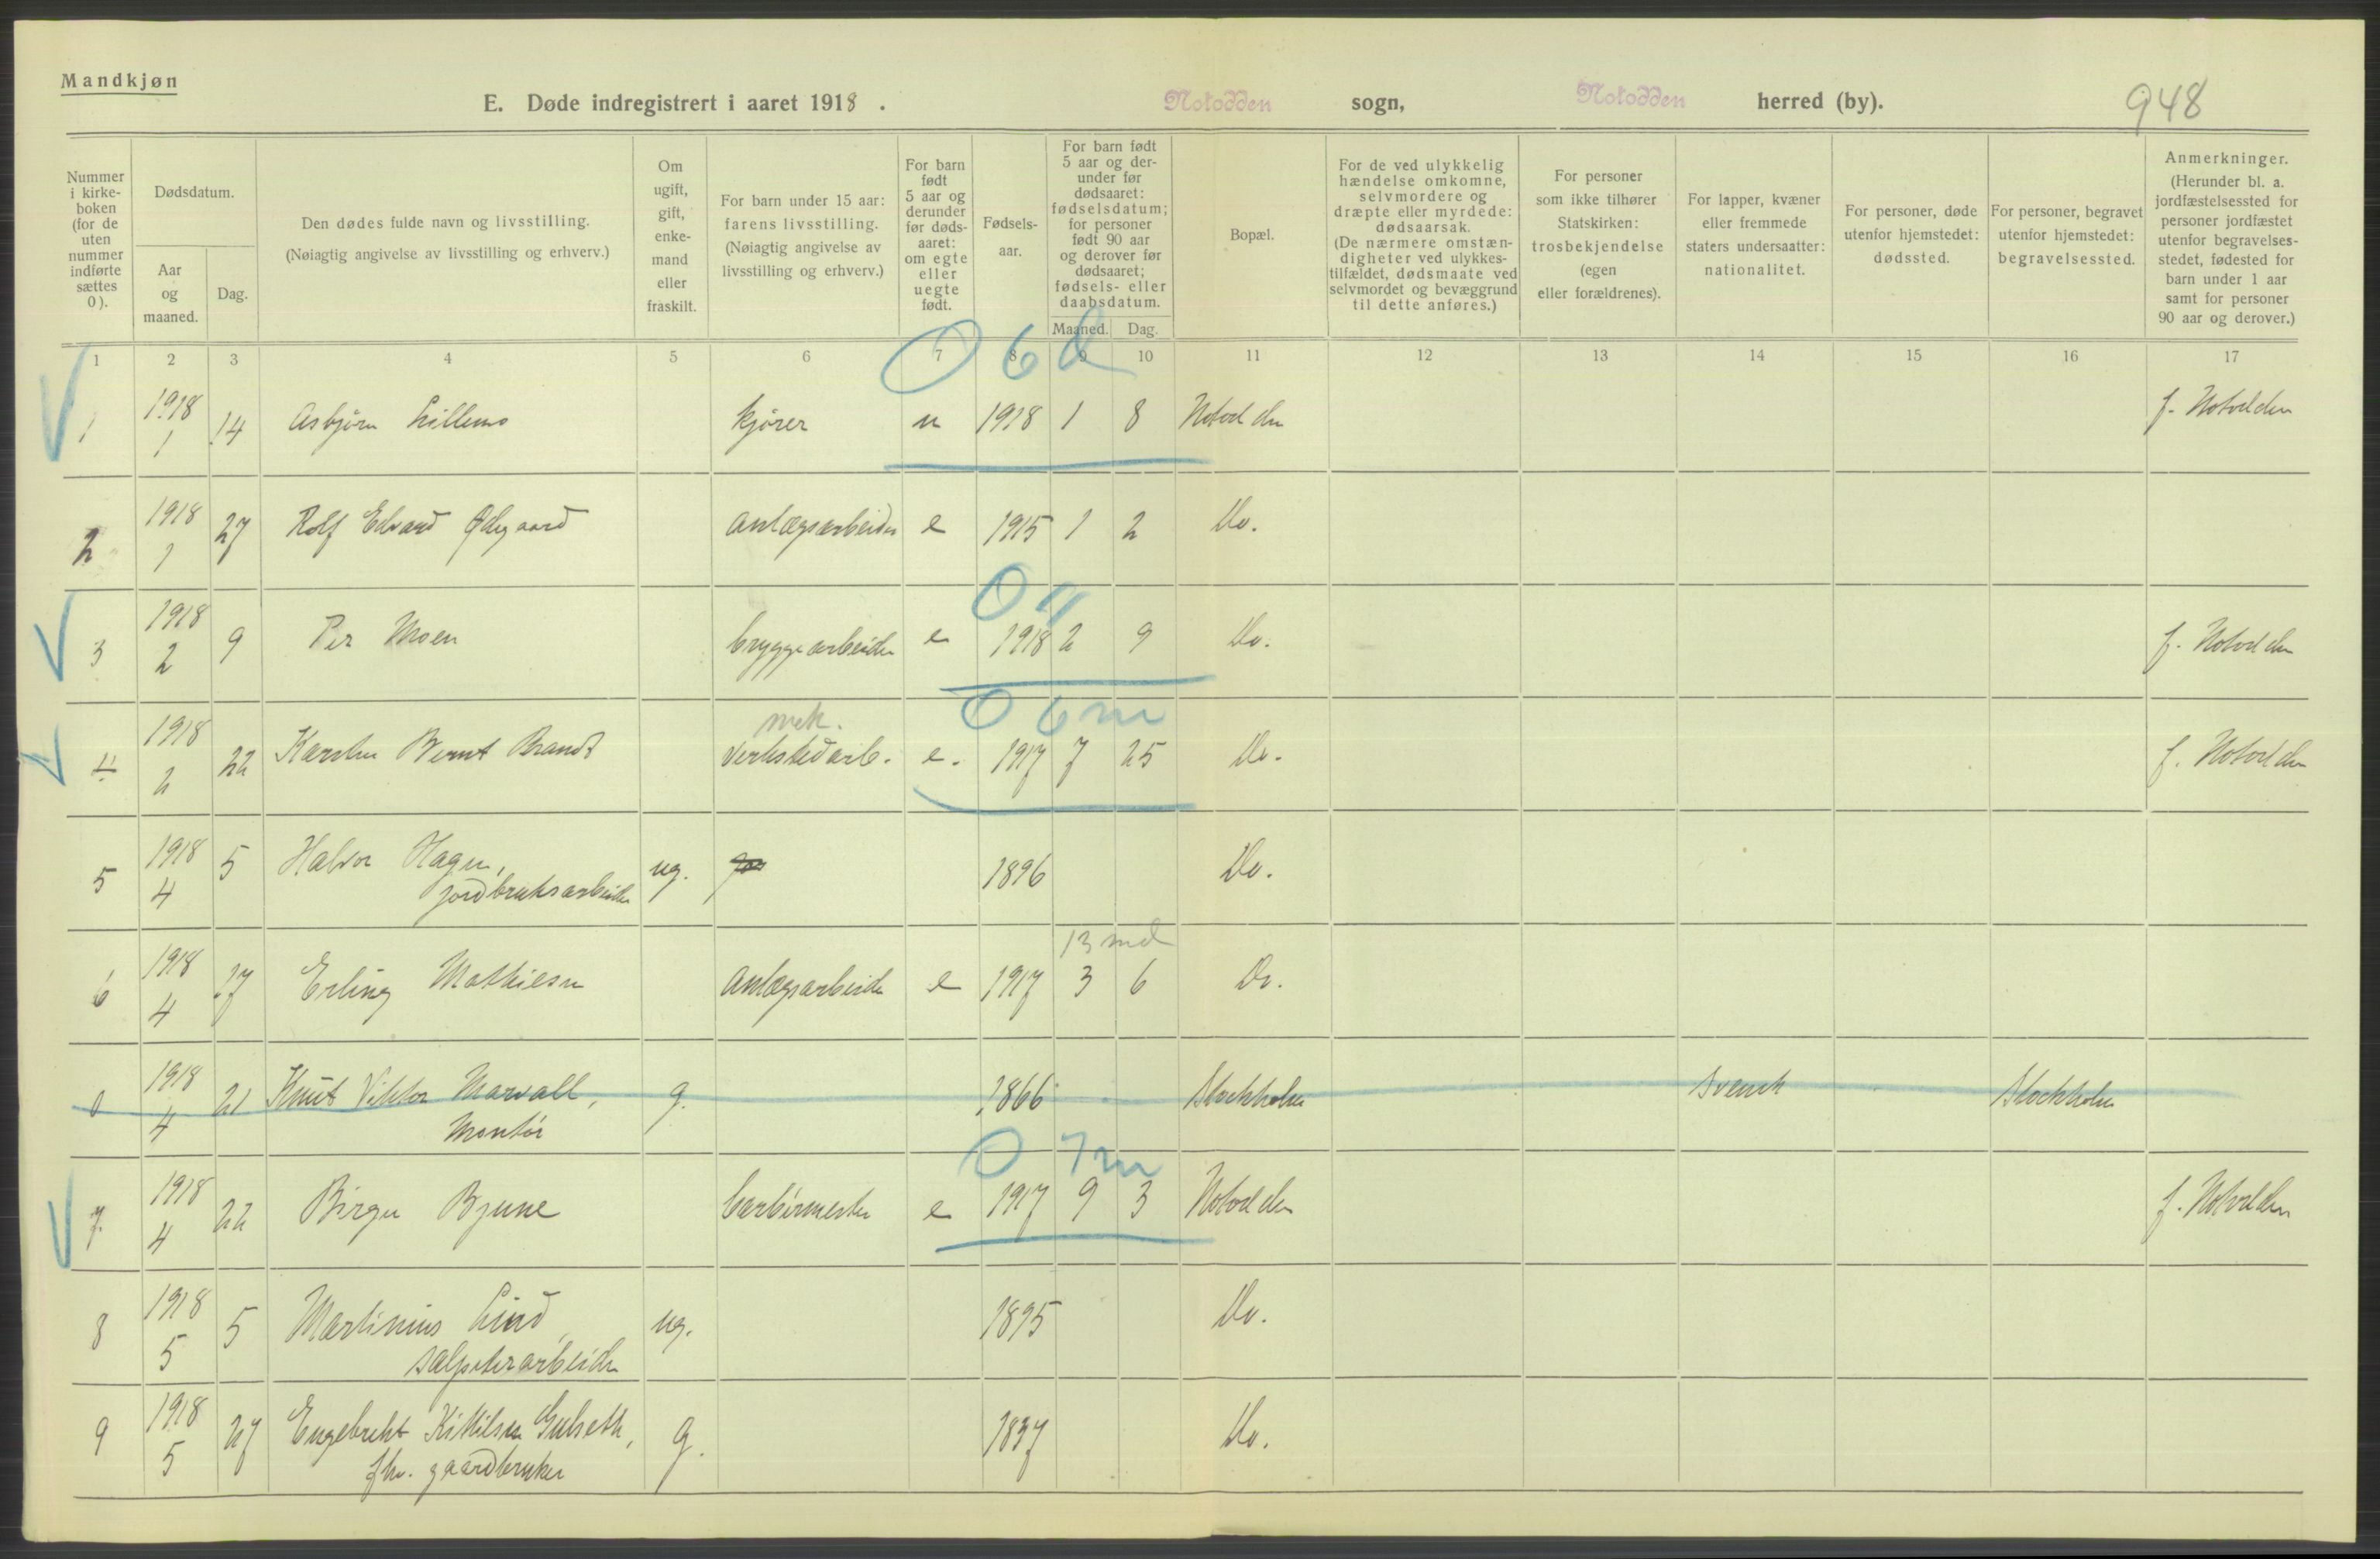 Mandkjøn
E. Døde indregistrert i aaret 1918 . Notodden sogn, Notodden herred (by). 948
Nummer i kirke-boken (for de uten nummer indførte sættes 0).
Dødsdatum.
Aar og maaned.
Dag.
Den dødes fulde navn og livsstilling.
(Nøiagtig angivelse av livsstilling og erhverv.)
Om ugift, gift, enke-mand eller fraskilt.
For barn under 15 aar: farens livsstilling. (Nøiagtig angivelse av livsstilling og erhverv.)
For barn født 5 aar og derunder før døds-aaret: om egte eller uegte født.
Fødsels-aar.
For barn født 5 aar og der-under før dødsaaret: fødselsdatum; for personer født 90 aar og derover før dødsaaret; fødsels- eller daabsdatum.
Maaned. Dag.
Bopæl.
For de ved ulykkelig hændelse omkomne, selvmordere og dræpte eller myrdede: dødsaarsak. (De nærmere omstæn-digheter ved ulykkes-tilfældet, dødsmaate ved selvmordet og bevæggrund til dette anføres.)
For personer som ikke tilhører Statskirken: trosbekjendelse (egen eller forældrenes).
For lapper, kvæner eller fremmede staters undersaatter: nationalitet.
For personer, døde utenfor hjemstedet: dødssted.
For personer, begravet utenfor hjemstedet: begravelsessted.
Anmerkninger. (Herunder bl. a. jordfæstelsessted for personer jordfæstet utenfor begravelses-stedet, fødested for barn under 1 aar samt for personer 90 aar og derover.)
1 2 3 4 5 6 7 8 9 10 11 12 13 14 15 16 17
0 6 d
1 1918 1 14 Asbjørn Lillemo kjører u 1918 1 8 Notodden f. Notodden
2 1918 1 27 Rolf Edvard Ødegaard Anlægsarbeider e 1915 1 2 Do.
0 11
3 1918 2 9 Per Moen bryggearbeider e 1918 2 9 Do. f. Notodden
0 6 m
mek.
4 1918 2 22 Karsten Bernt Brandt Verkstedarb. e. 1917 7 25 Do. f. Notodden
5 1918 4 5 Halvor Hagen, ug. 1896 Do.
jordbruksarbeider
13 md
6 1918 4 17 Erling Mathiesen Anlægsarbeider e 1917 3 6 Do.
0 1918 4 21 Knut Viktor Marvall, g. 1866 Stockholm svensk Stockholm
Montør
0 7 m
7. 1918 4 22 Birger Bjune barbérmester e 1917 9 3 Notodden f. Notodden
8 1918 5 5 Martinius Lind, ug. 1895 Do.
salpeterarbeider
9 1918 5 27 Engebrekt Kittilsen Gulseth, g. 1837 Do.
fhv. gaardbruker